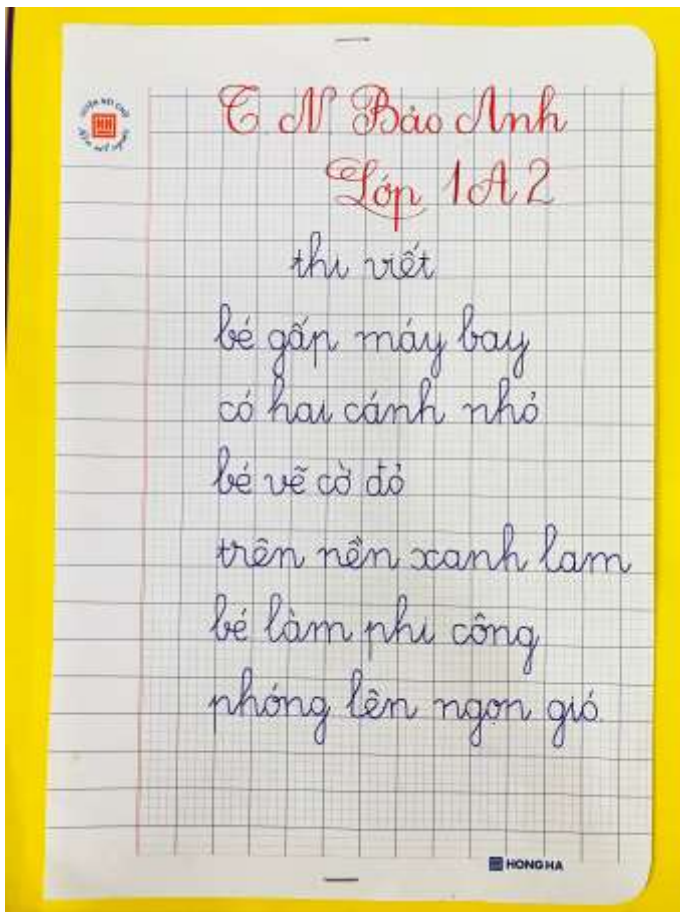 T N Bảo Anh
Lớp 1A2
thi viết
bé gấp máy bay
có hai cánh nhỏ
bé vẽ cờ đỏ
trên nền xanh lam
bé làm phi công
phóng lên ngọn gió
HONG HA